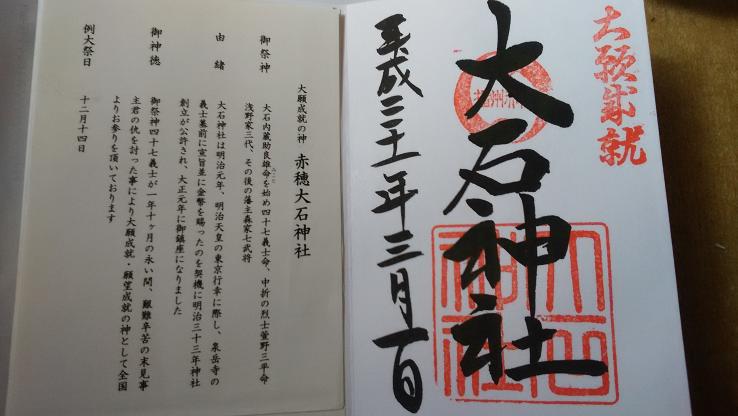 大願成就
大石神社
平成三十一年三月一日
大願成就の神 赤穂大石神社
御祭神 大石内蔵助良雄命を始め四十七義士命、中折の烈士萱野三平命
浅野家三代、その後の藩主森家七武将
由緒 大石神社は明治元年、明治天皇の東京行幸に際し、泉岳寺の
義士墓前に宣旨並に金幣を賜ったのを契機に明治三十三年神社
創立が公許され、大正元年に御鎮座になりました
御神徳 御祭神四十七義士が一年十ヶ月の永い間、艱難辛苦の末見事
主君の仇を討った事により大願成就・願望成就の神として全国
よりお参りを頂いております
例大祭日 十二月十四日